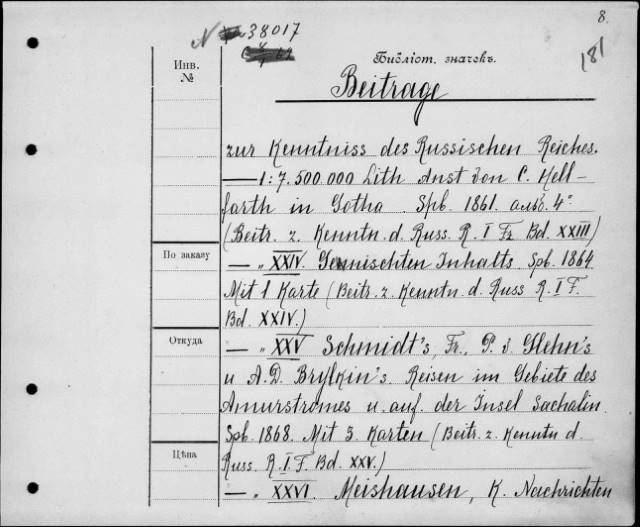 8.
N 38017
181
Инв.
№
Библіот. значекъ.
Beitrage
zur Kenntniss des Russischen Reiches.
— 1:7.500.000 Lith Anst von C. Hell-
farth in Gotha Spb. 1861. 4°
(Beitr. z. Kenntn. d. Russ. R. I F. Bd. XXIII)
По заказу
— „ XXIV. Gemischten Inhalts. Spb. 1864
Mit 1 Karte (Beitr. z. Kenntn d. Russ R. I F.
Bd. XXIV.)
Откуда
— „ XXV Schmidt's, Fr., P. v. Glehn's
u A. D. Brylkin's. Reisen im Gebiete des
Amurstromes u. auf. der Insel Sachalin.
Spb. 1868. Mit 3. Karten (Beitr. z. Kenntn d.
Цѣна
Russ. R. I. F. Bd. XXV.)
— „ XXVI. Meishausen, K. Nachrichten